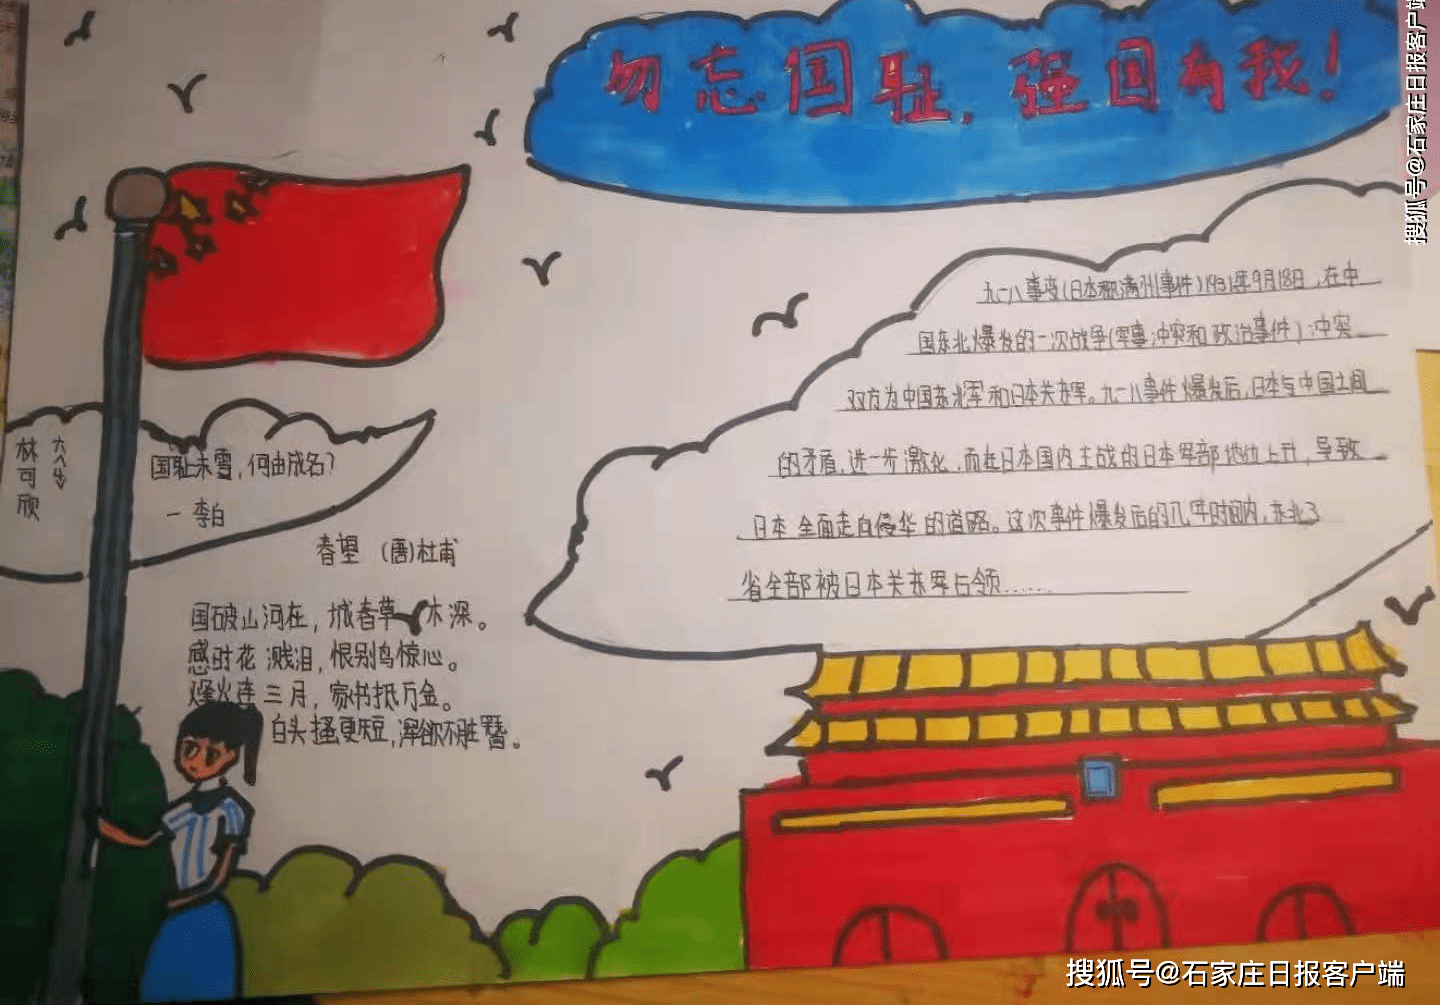 勿忘国耻，强国有我！
九一八事变(日本称满州事件)1931年9月18日，在中
国东北爆发的一次战争(军事冲突和政治事件)冲突
双方为中国东北军和日本关东军。九一八事件爆发后，日本与中国之间
的矛盾进一步激化，而在日本国内主战的日本军部地位上升，导致
日本全面走向侵华的道路。这次事件爆发后的几年时间内，东北3
省全部被日本关东军占领……
林可欣
国耻未雪，何由成名？
一李白
春望 (唐)杜甫
国破山河在，城春草木深。
感时花溅泪，恨别鸟惊心。
烽火连三月，家书抵万金。
白头搔更短，浑欲不胜簪。
搜狐号@石家庄日报客户端
搜狐号@石家庄日报客户端